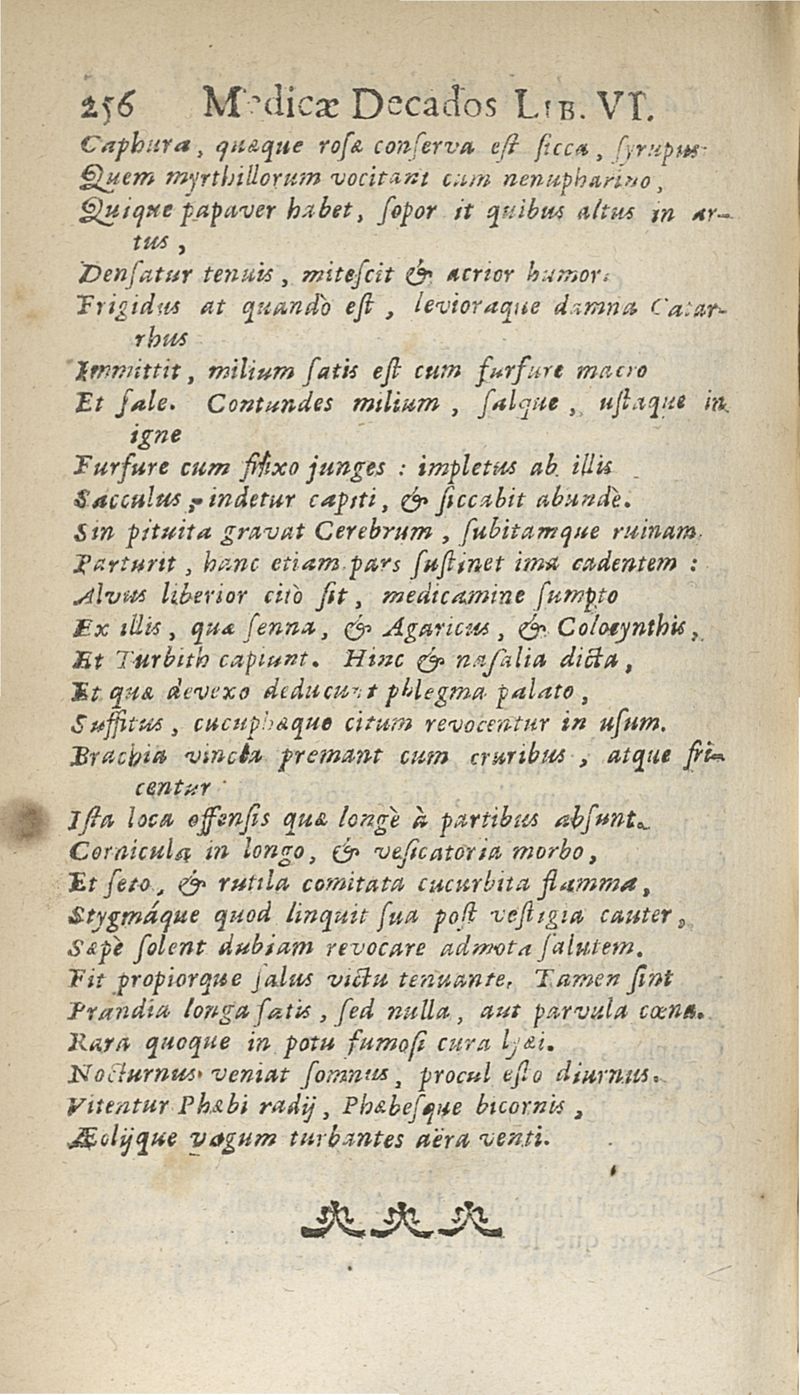 256 Medicæ Decados LIB. VI.
Caphura, quæque rosæ conserva est sicca, syrupus
Quem myrthillorum vocitant cum nenupharino,
Quique papaver habet, sopor it quibus altus in ar-
tus,
Densatur tenuis, mitescit & acrior humor.
Frigidus at quandò est, levioraque damna Catar-
rhus
Immittit, milium satis est cum furfure macro
Et sale. Contundes milium, salque, ustaque in
igne
Furfure cum fixo junges : impletus ab illis
Sacculus, indetur capiti, & siccabit abundè.
Sin pituita gravat Cerebrum, subitamque ruinam
Parturit, hanc etiam pars sustinet ima cadentem :
Alvus liberior citò sit, medicamine sumpto
Ex illis, quæ senna, & Agaricus, & Colocynthis,
Et Turbith capiunt. Hinc & nasalia dicta,
Et quæ devexo deducunt phlegma palato,
Suffitus, cucuphæque citum revocentur in usum.
Brachia vincla premant cum cruribus, atque fri-
centur
Ista loca offensis quæ longè à partibus absunt.
Cornicula in longo, & vesicatoria morbo,
Et seto, & rutila comitata cucurbita flamma,
Stygmáque quod linquit sua post vestigia cauter,
Sæpè solent dubiam revocare admota salutem.
Fit propiorque salus victu tenuante. Tamen sint
Prandia longa satis, sed nulla, aut parvula cœna.
Rara quoque in potu fumosi cura lyæi.
Nocturnus veniat somnus, procul esto diurnus.
Vitentur Phæbi radij, Phæbesque bicornis,
Æolijque vagum turbantes aëra venti.